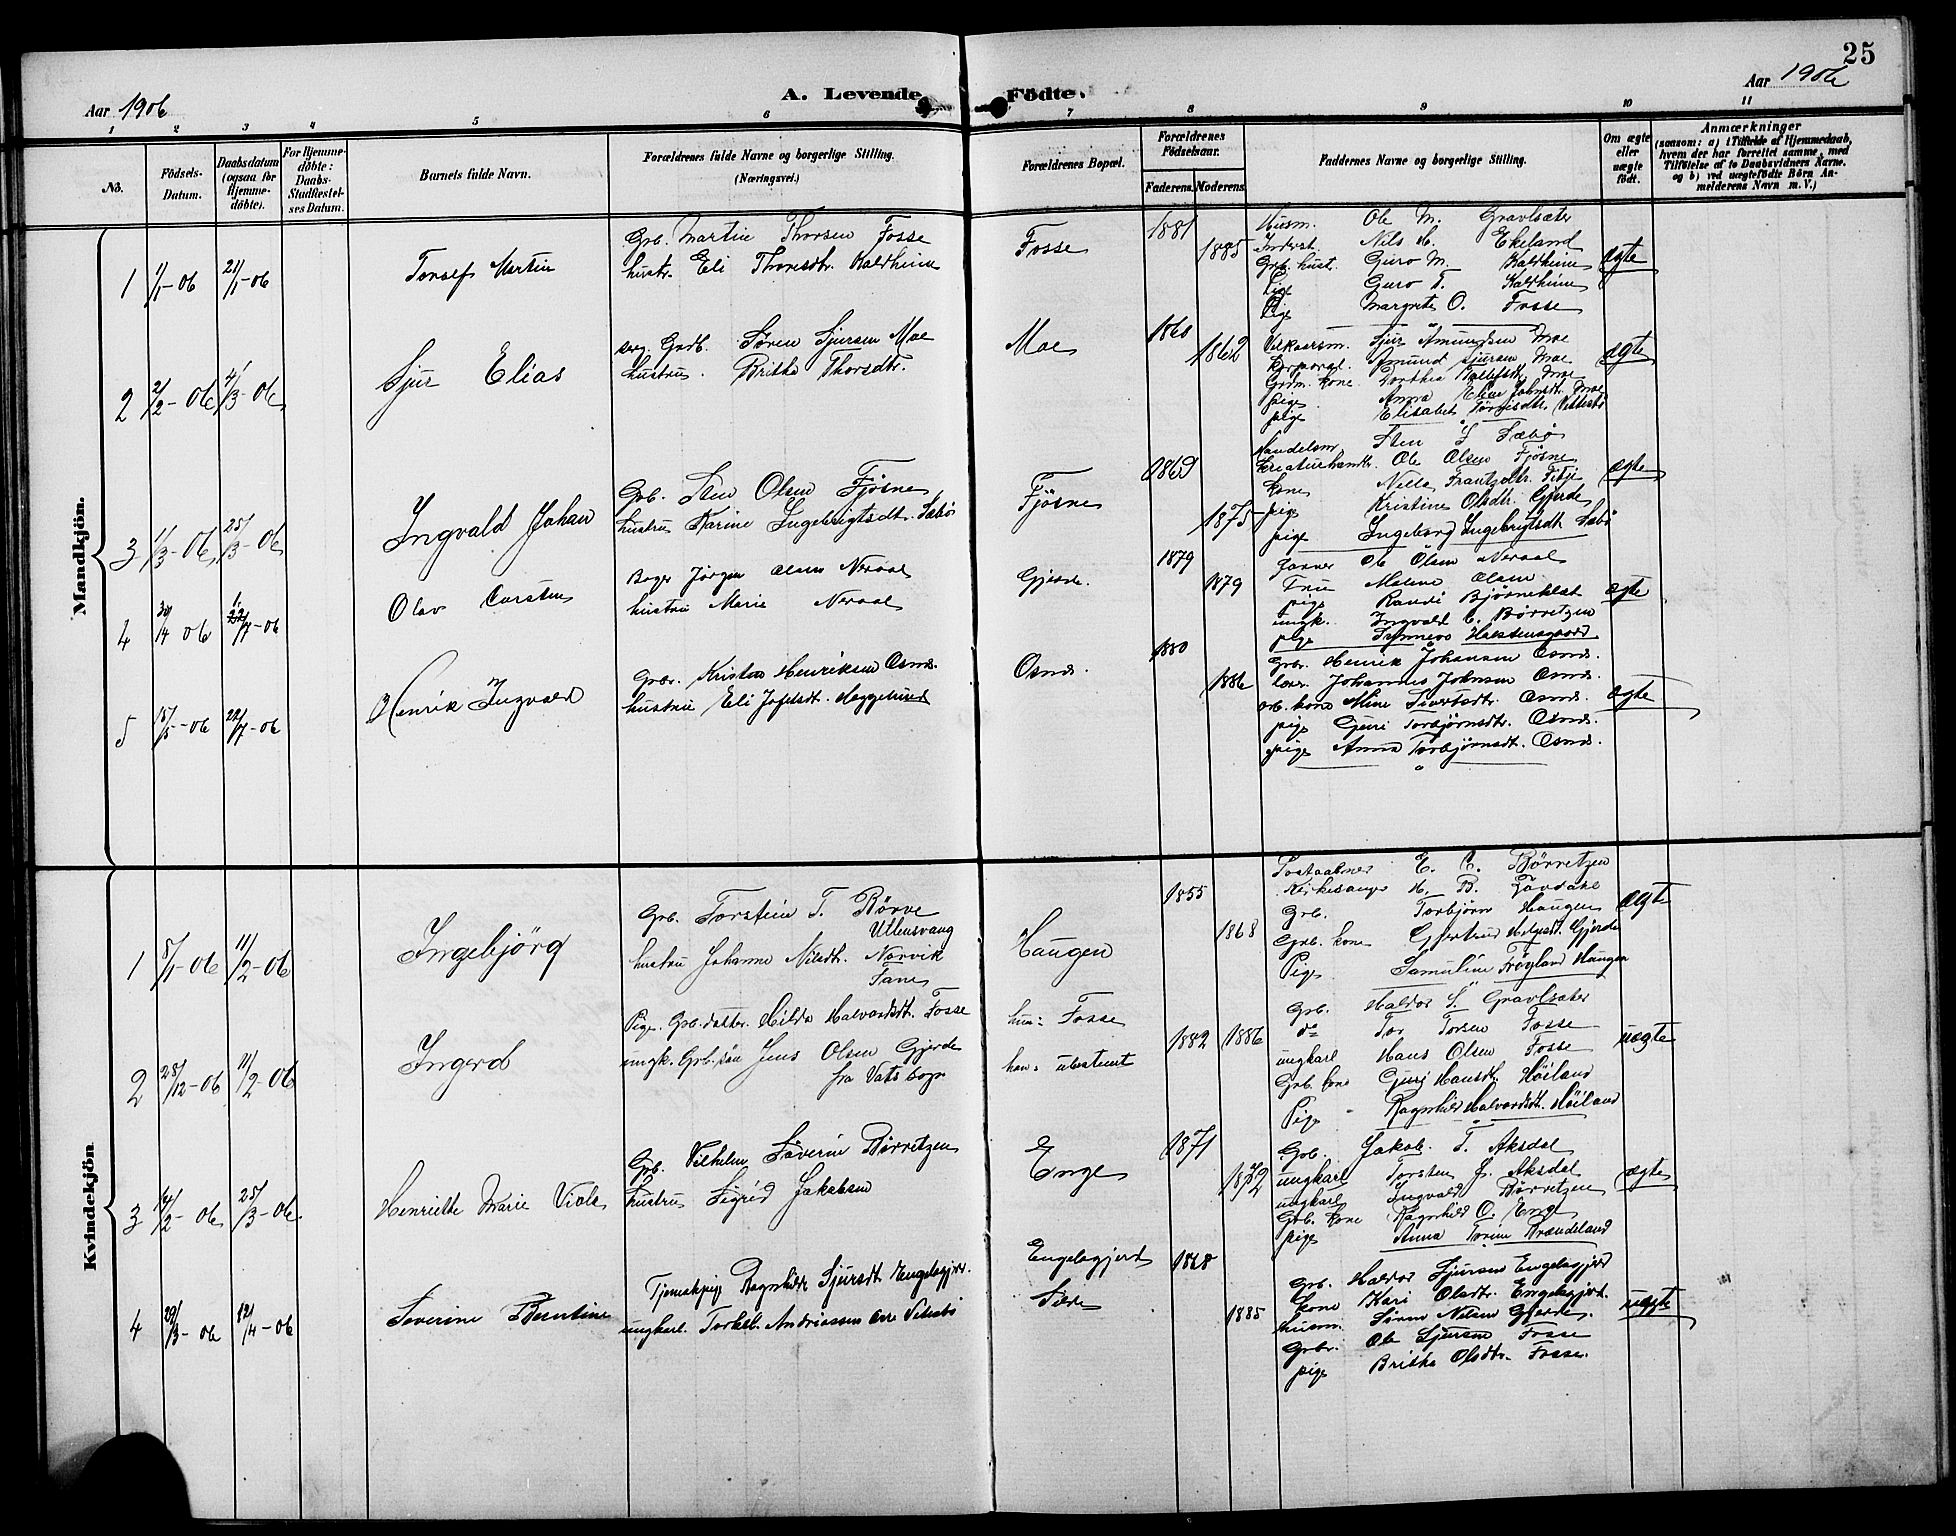 25
Aar 1906
A. Levende Fødte.
Aar 1906
1 2 3 4 5 6 7 8 9 10 11
No.
Fødsels-
Datum.
Daabsdatum
(ogsaa for
Hjemme-
døbte).
For Hjemme-
døbte:
Daabs-
Stadfæstel-
ses Datum.
Barnets fulde Navn.
Forældrenes fulde Navne og borgerlige Stilling.
(Næringsvei.)
Forældrenes Bopæl.
Forældrenes
Fødselsaar.
Faderens. Moderens.
Faddernes Navne og borgerlige Stilling.
Om ægte
eller
uægte
født.
Anmærkninger
(saasom: a) i Tilfælde af Hjemmedaab,
hvem der har forrettet samme, med
Tilføielse af to Daabsvidners Navne.
og b) ved uægtefødte Børn An-
melderens Navn m. V.)
Mandkjøn.
1 1/1-06 21/1-06 Torleif Martin
Grb. Martin Thorsen Fosse
hustr. Eli Thoresdtr. Kaltheim
Fosse 1881 1885
Husm. Ole M. Gravlsæter
Inderst. Nils H. Ekeland
Grb. hust. Guro M. Kaltheim
Pige Guro T. Kaltheim
Pige Margrete O. Fosse
ægte
2 2/2-06 4/3-06 Sjur Elias
Grdb. Søren Sjursen Moe
hustru. Britha Thorsdtr.
Moe 1860 1862
Sjur Amundsen Moe
Amund Sjursen Moe
Grdm. kone Dorthea Moe
pige Anna Elise Johnsdt. Moe
pige Elisabet
ægte
3 1/3-06 25/3-06 Ingvald Johan
Grb. Sten Olsen Fjøsne
hustru Karine Ingebrigtsdt. Sæbø
Fjøsne 1869 1875
Handelsm. Sten S Sæbø
Kreaturhandl. Ole Olsen Fjøsne
Kone Nella Frantzdtr. Fitje
pige Kristine Olsdtr. Gjerde
pige Ingeborg Ingebrigtsdt Sæbø
ægte
4 30/4 06 22/7-06 Olav Carsten
Bager Jørgen Olsen Neraal
hustru Marie Neraal
Gjerde 1879 1879
Ole Olsen Neraal
Frue Malene Olsen
pige Randi Bjørneklet
ungk. Ingvald C. Børretzen
pige Synneve Halstensgaard
ægte
5 15/5-06 22/7-06 Henrik Ingvald
Grbr. Kristen Henriksen Osnes.
hustru Eli Josefsdt. Heggelund
Osnes. 1880 1886
Grbr. Henrik Johansen Osnes.
lærer. Johannes Johnsen Osnes.
Grb. kone Mine Sivertsdtr. Osnes.
pige Guri Torbjørnsdtr. Osnes.
pige Anna Torbjørnsdt. Osnes.
ægte
Kvindekjøn
1 8/1-06 11/2-06 Ingebjörg
Grb. Torstein T. Børve
Ullensvang
hustru Johanne Nilsdtr. Norvik
Fane
Haugen 1855 1868
Postaabner E. C. Børretzen
Kirkesanger H. B.
Grb. Torbjørn Haugen
Grb. kone Gjertrud Helgesdt. Gjerde
Pige Samuline Frøyland Haugen
ægte
2 28/12-06 11/2-06 Ingerd
Pige. Grb. datter. Hilda Halvordsdt. Fosse
ungk. Grb. søn Jens Olsen Gjerde
fra Vats sogn
hun: Fosse
han: ubestemt
1882 1886
Grb. Haldor S. Gravlsæter
do Tor Torsen Fosse
ungkarl Hans Olsen Fosse
Grb. kone Guri Hansdt. Höiland
Pige Ragnhild Halvordsdt. Höiland
uægte
3 14/2-06 25/3-06. Henriette Marie Viola
Grb. Vilhelm Säverin Børretzen
hustru Sigrid Jakobsen
Enge 1871 1872
Grb. Jakob. T. Aksdal
ungkarl Torsten J. Aksdal
ungkarl Ingvald Børretzen
Grb. kone Ragnhild O. Enge
pige Anna Brændeland
ægte
4 29/3-06 12/4-06 Severine Berntine
Tjenestpige Ragnhilde Sjursdt Engelsgjerd.
ungkarl. Torkel Andreassen
Engelsgjerd
Silde
1868 1885
Grb. Haldor Sjursen Engelsgjerd
kone Kari Olsdtr. Engelsgjerd.
husm. Sören Nilsen Gjerde.
Grbr. Ole Sjursen Fosse
pige Britha Olsdtr. Fosse.
uægte